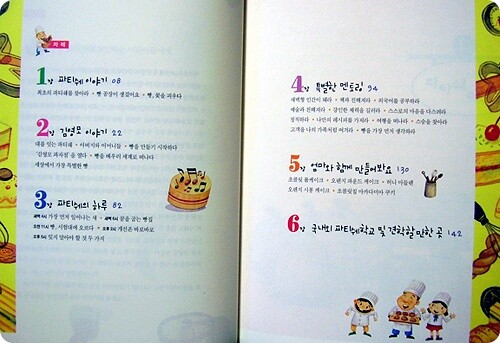 차례
1장 파티쉐 이야기 08
최초의 파티쉐를 찾아라 • 빵 공장이 생겼어요 • 빵, 꽃을 피우다
2장 김영모 이야기 22
대를 잇는 파티쉐 • 아버지와 어머니들 • 빵을 만들기 시작하다
'김영모 과자점'을 열다 • 빵을 배우러 세계로 떠나다
세상에서 가장 특별한 빵
3장 파티쉐의 하루 82
새벽 4시 가장 먼저 일어나는 새 • 새벽 6시 꿈을 굽는 빵집
오전 11시 빵, 시험대에 오르다 • 오후 2시 개선은 바로바로
오후 5시 잊지 말아야 할 것 두 가지
4장 특별한 멘토링 94
새벽형 인간이 돼라 • 책과 친해져라 • 외국어를 공부하라
예술과 친해져라 • 강인한 체력을 길러라 • 스스로의 마음을 다스려라
정직하라 • 나만의 레시피를 가져라 • 여행을 떠나라 • 스승을 찾아라
고객을 나의 가족처럼 여겨라 • 빵을 가장 먼저 생각하라
5장 엄마와 함께 만들어봐요 130
초콜릿 롤케이크 • 오렌지 파운드 케이크 • 허니 마들렌
오렌지 시폰 케이크 • 초콜릿칩 마카다미아 쿠키
6장 국내외 파티쉐학교 및 견학할 만한 곳 142